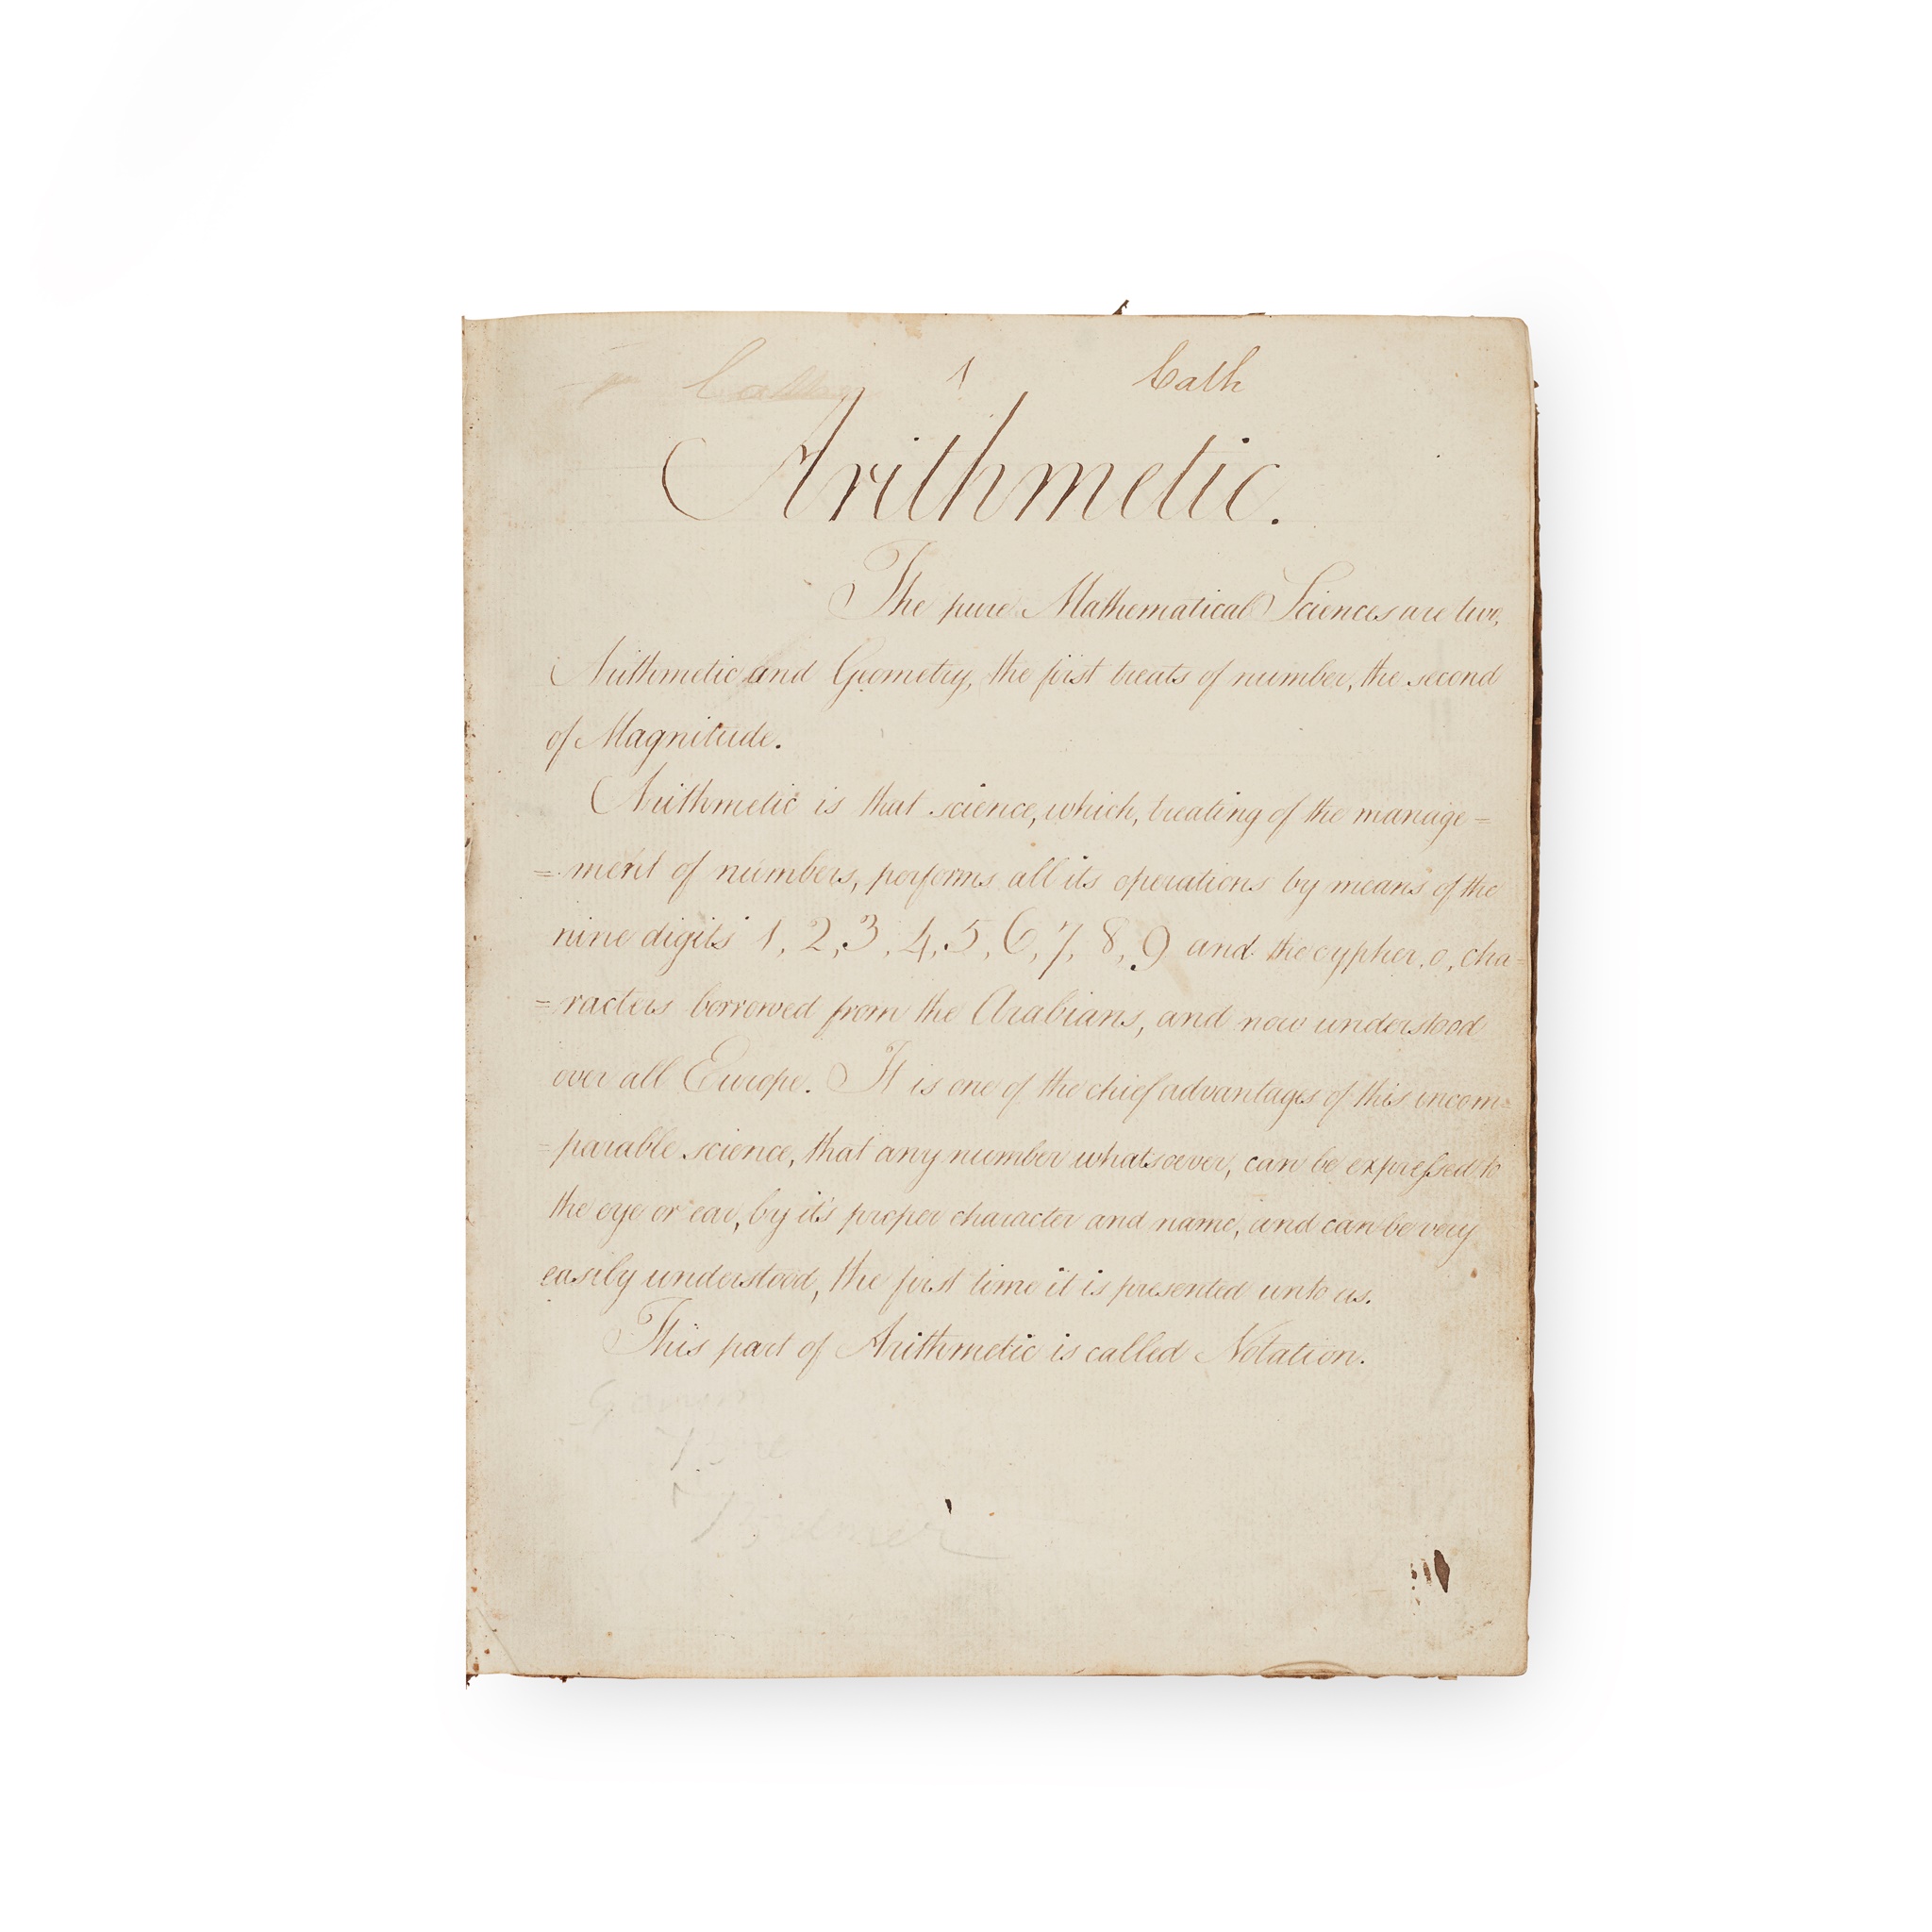 1 Cath
Arithmetic.
The pure Mathematical Sciences are two,
Arithmetic and Geometry, the first treats of number, the second
of Magnitude.
Arithmetic is that science, which, treating of the manage=
=ment of numbers, performs all its operations by means of the
nine digits 1, 2, 3, 4, 5, 6, 7, 8, 9 and the cypher, 0, cha=
=racters borrowed from the Arabians, and now understood
over all Europe. It is one of the chief advantages of this incom=
=parable science, that any number whatsoever, can be expreſsed to
the eye or ear, by it's proper character and name, and can be very
easily understood, the first time it is presented unto us.
This part of Arithmetic is called Notation.